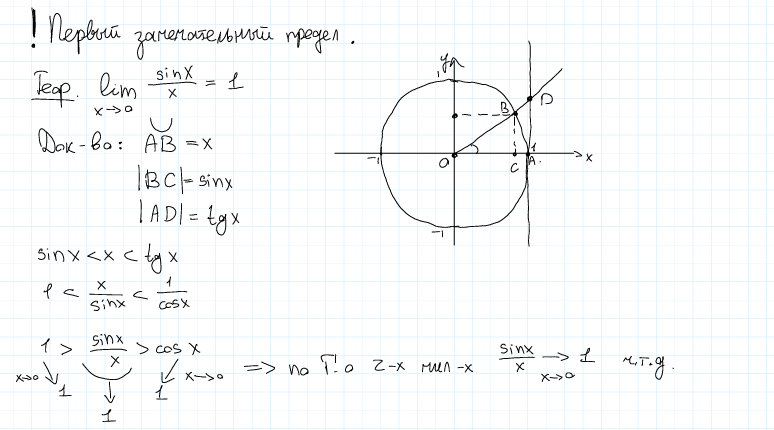 ! Первый замечательный предел.
Теор. lim x→0 sinx/x = 1
Док-во: AB = x
|BC| = sinx
|AD| = tgx
sinx < x < tgx
1 < x/sinx < 1/cosx
1 > sinx/x > cosx
x→0 1 1 1 x→0
=> по Т. о 2-х мил-х sinx/x → 1 x→0 ч.т.д.
y
1
B
D
-1
O
C
1
A
x
-1